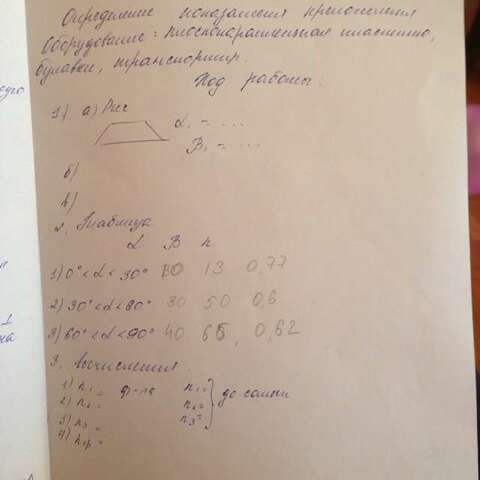 Определение показателя преломления
Оборудование: плоскопараллельная пластина,
булавки, транспортир.
Ход работы:
1) а) Рис
α₁ = ...
β₁ = ...
б)
в)
2. Таблица
α β n
1) 0° < α < 30° 10 13 0,77
2) 30° < α < 60° 30 50 0,6
3) 60° < α < 90° 40 65, 0,62
3. вычисления.
1) n₁ = ф-ла n₁=
2) n₂ = n₂= до сотых
3) n₃ = n₃=
4) nср =